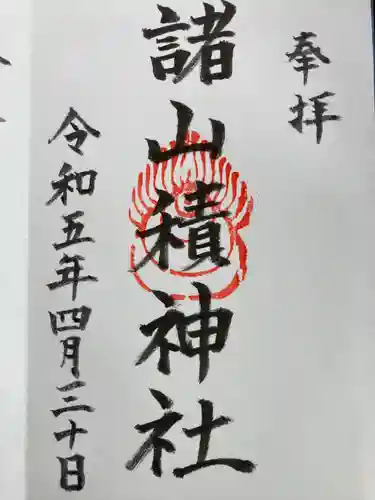 奉拝
諸山積神社
令和五年四月三十日